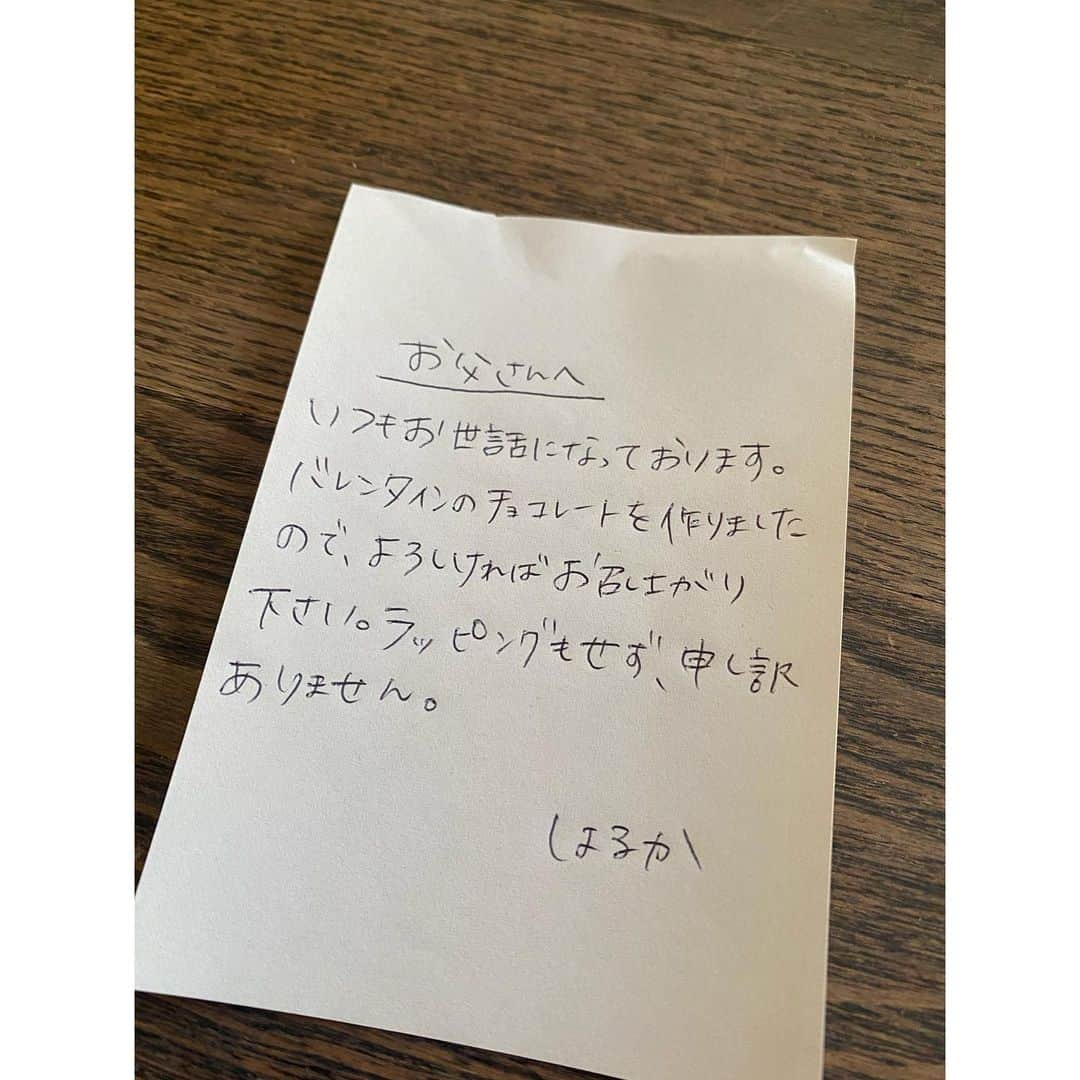 お父さんへ
いつもお世話になっております。
バレンタインのチョコレートを作りました
ので、よろしければお召し上がり
下さい。ラッピングもせず、申し訳
ありません。
はるか